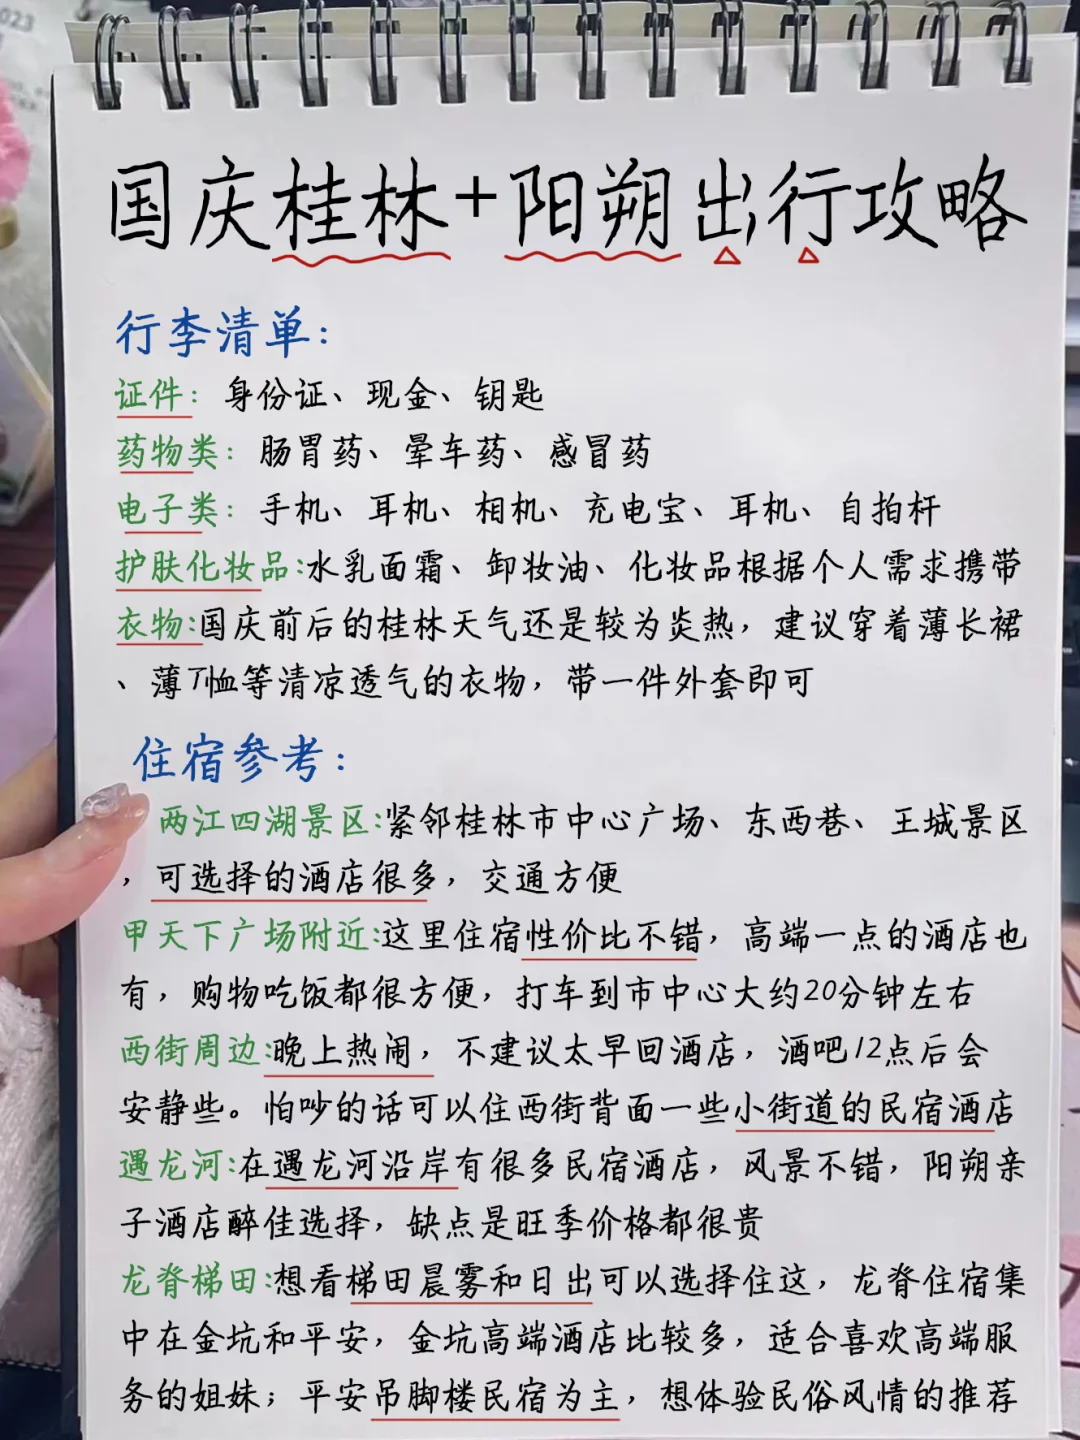 023
国庆桂林+阳朔出行攻略
行李清单:
证件: 身份证、现金、钥匙
药物类: 肠胃药、晕车药、感冒药
电子类: 手机、耳机、相机、充电宝、耳机、自拍杆
护肤化妆品:水乳面霜、卸妆油、化妆品根据个人需求携带
衣物:国庆前后的桂林天气还是较为炎热，建议穿着薄长裙
、薄T恤等清凉透气的衣物，带一件外套即可
住宿参考:
两江四湖景区:紧邻桂林市中心广场、东西巷、王城景区
，可选择的酒店很多，交通方便
甲天下广场附近:这里住宿性价比不错，高端一点的酒店也
有，购物吃饭都很方便，打车到市中心大约20分钟左右
西街周边:晚上热闹，不建议太早回酒店，酒吧12点后会
安静些。怕吵的话可以住西街背面一些小街道的民宿酒店
遇龙河:在遇龙河沿岸有很多民宿酒店，风景不错，阳朔亲
子酒店醉佳选择，缺点是旺季价格都很贵
龙脊梯田:想看梯田晨雾和日出可以选择住这，龙脊住宿集
中在金坑和平安，金坑高端酒店比较多，适合喜欢高端服
务的姐妹；平安吊脚楼民宿为主，想体验民俗风情的推荐